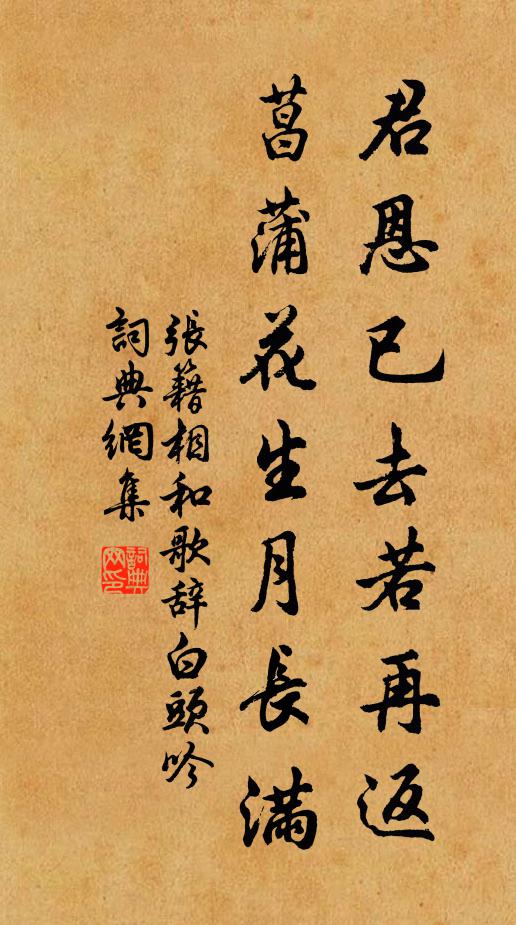 君恩已去若再返
菖蒲花生月長滿
張籍相和歌辞白頭吟
詞典網集
詞典網印